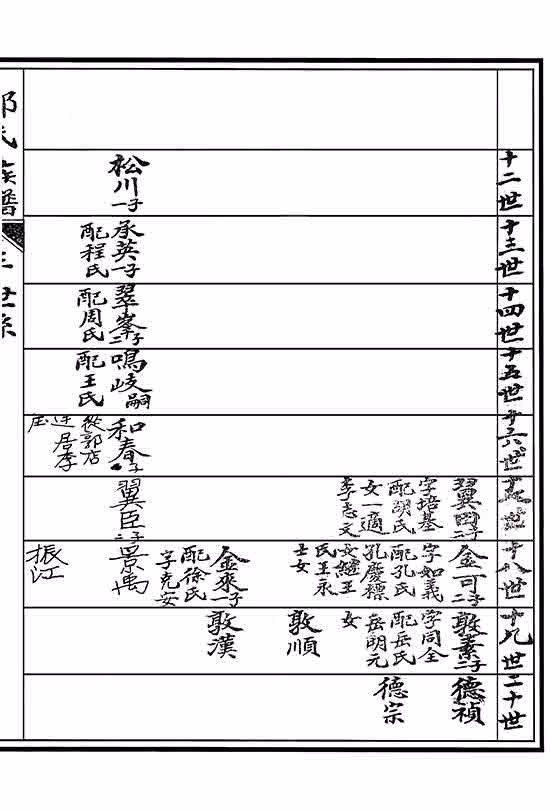 十二世
十三世
十四世
十五世
十六世
十七世
十八世
十九世
二十世
松川一子
承英一子
配程氏
翠峯二子
配周氏
鳴岐嗣
配王氏
和春子
從郭店
迁居李
庄
翼田二子
字培基
配胡氏
女一適
李志文
翼臣二子
金可二子
字如義
配孔氏
孔慶標
女繼王
氏王永
士女
金來一子
配徐氏
字克安
景禹
振江
敦素二子
字同全
配岳氏
岳朗元
女
敦順
敦漢
德禎
德宗
氏族譜
世系